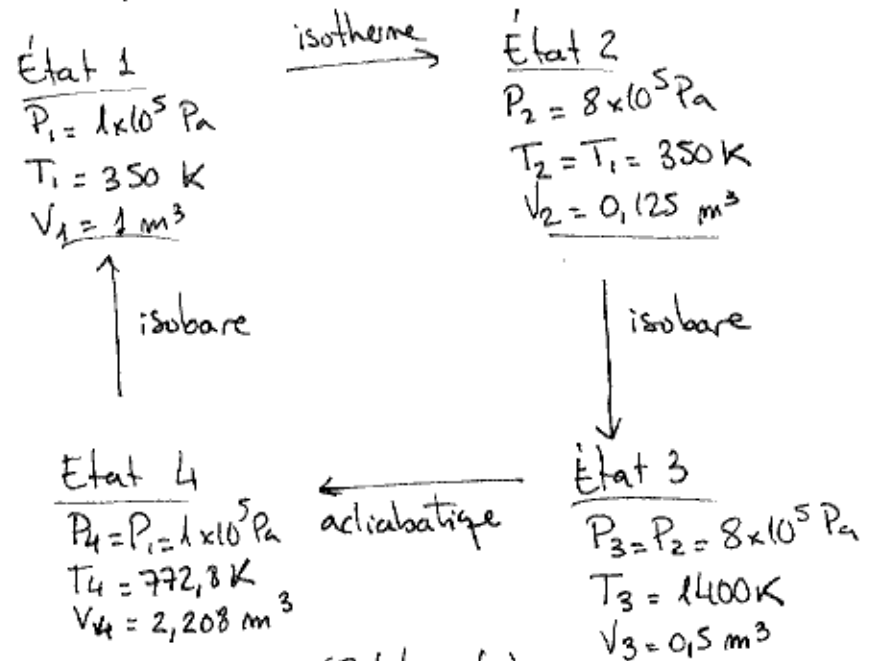 État 1
P₁ = 1x10⁵ Pa
T₁ = 350 K
V₁ = 1 m³
isotherme
État 2
P₂ = 8x10⁵ Pa
T₂ = T₁ = 350 K
V₂ = 0,125 m³
isobare
isobare
Etat 4
P₄ = P₁ = 1x10⁵ Pa
T₄ = 772,8 K
V₄ = 2,208 m³
adiabatique
État 3
P₃ = P₂ = 8x10⁵ Pa
T₃ = 1400 K
V₃ = 0,5 m³